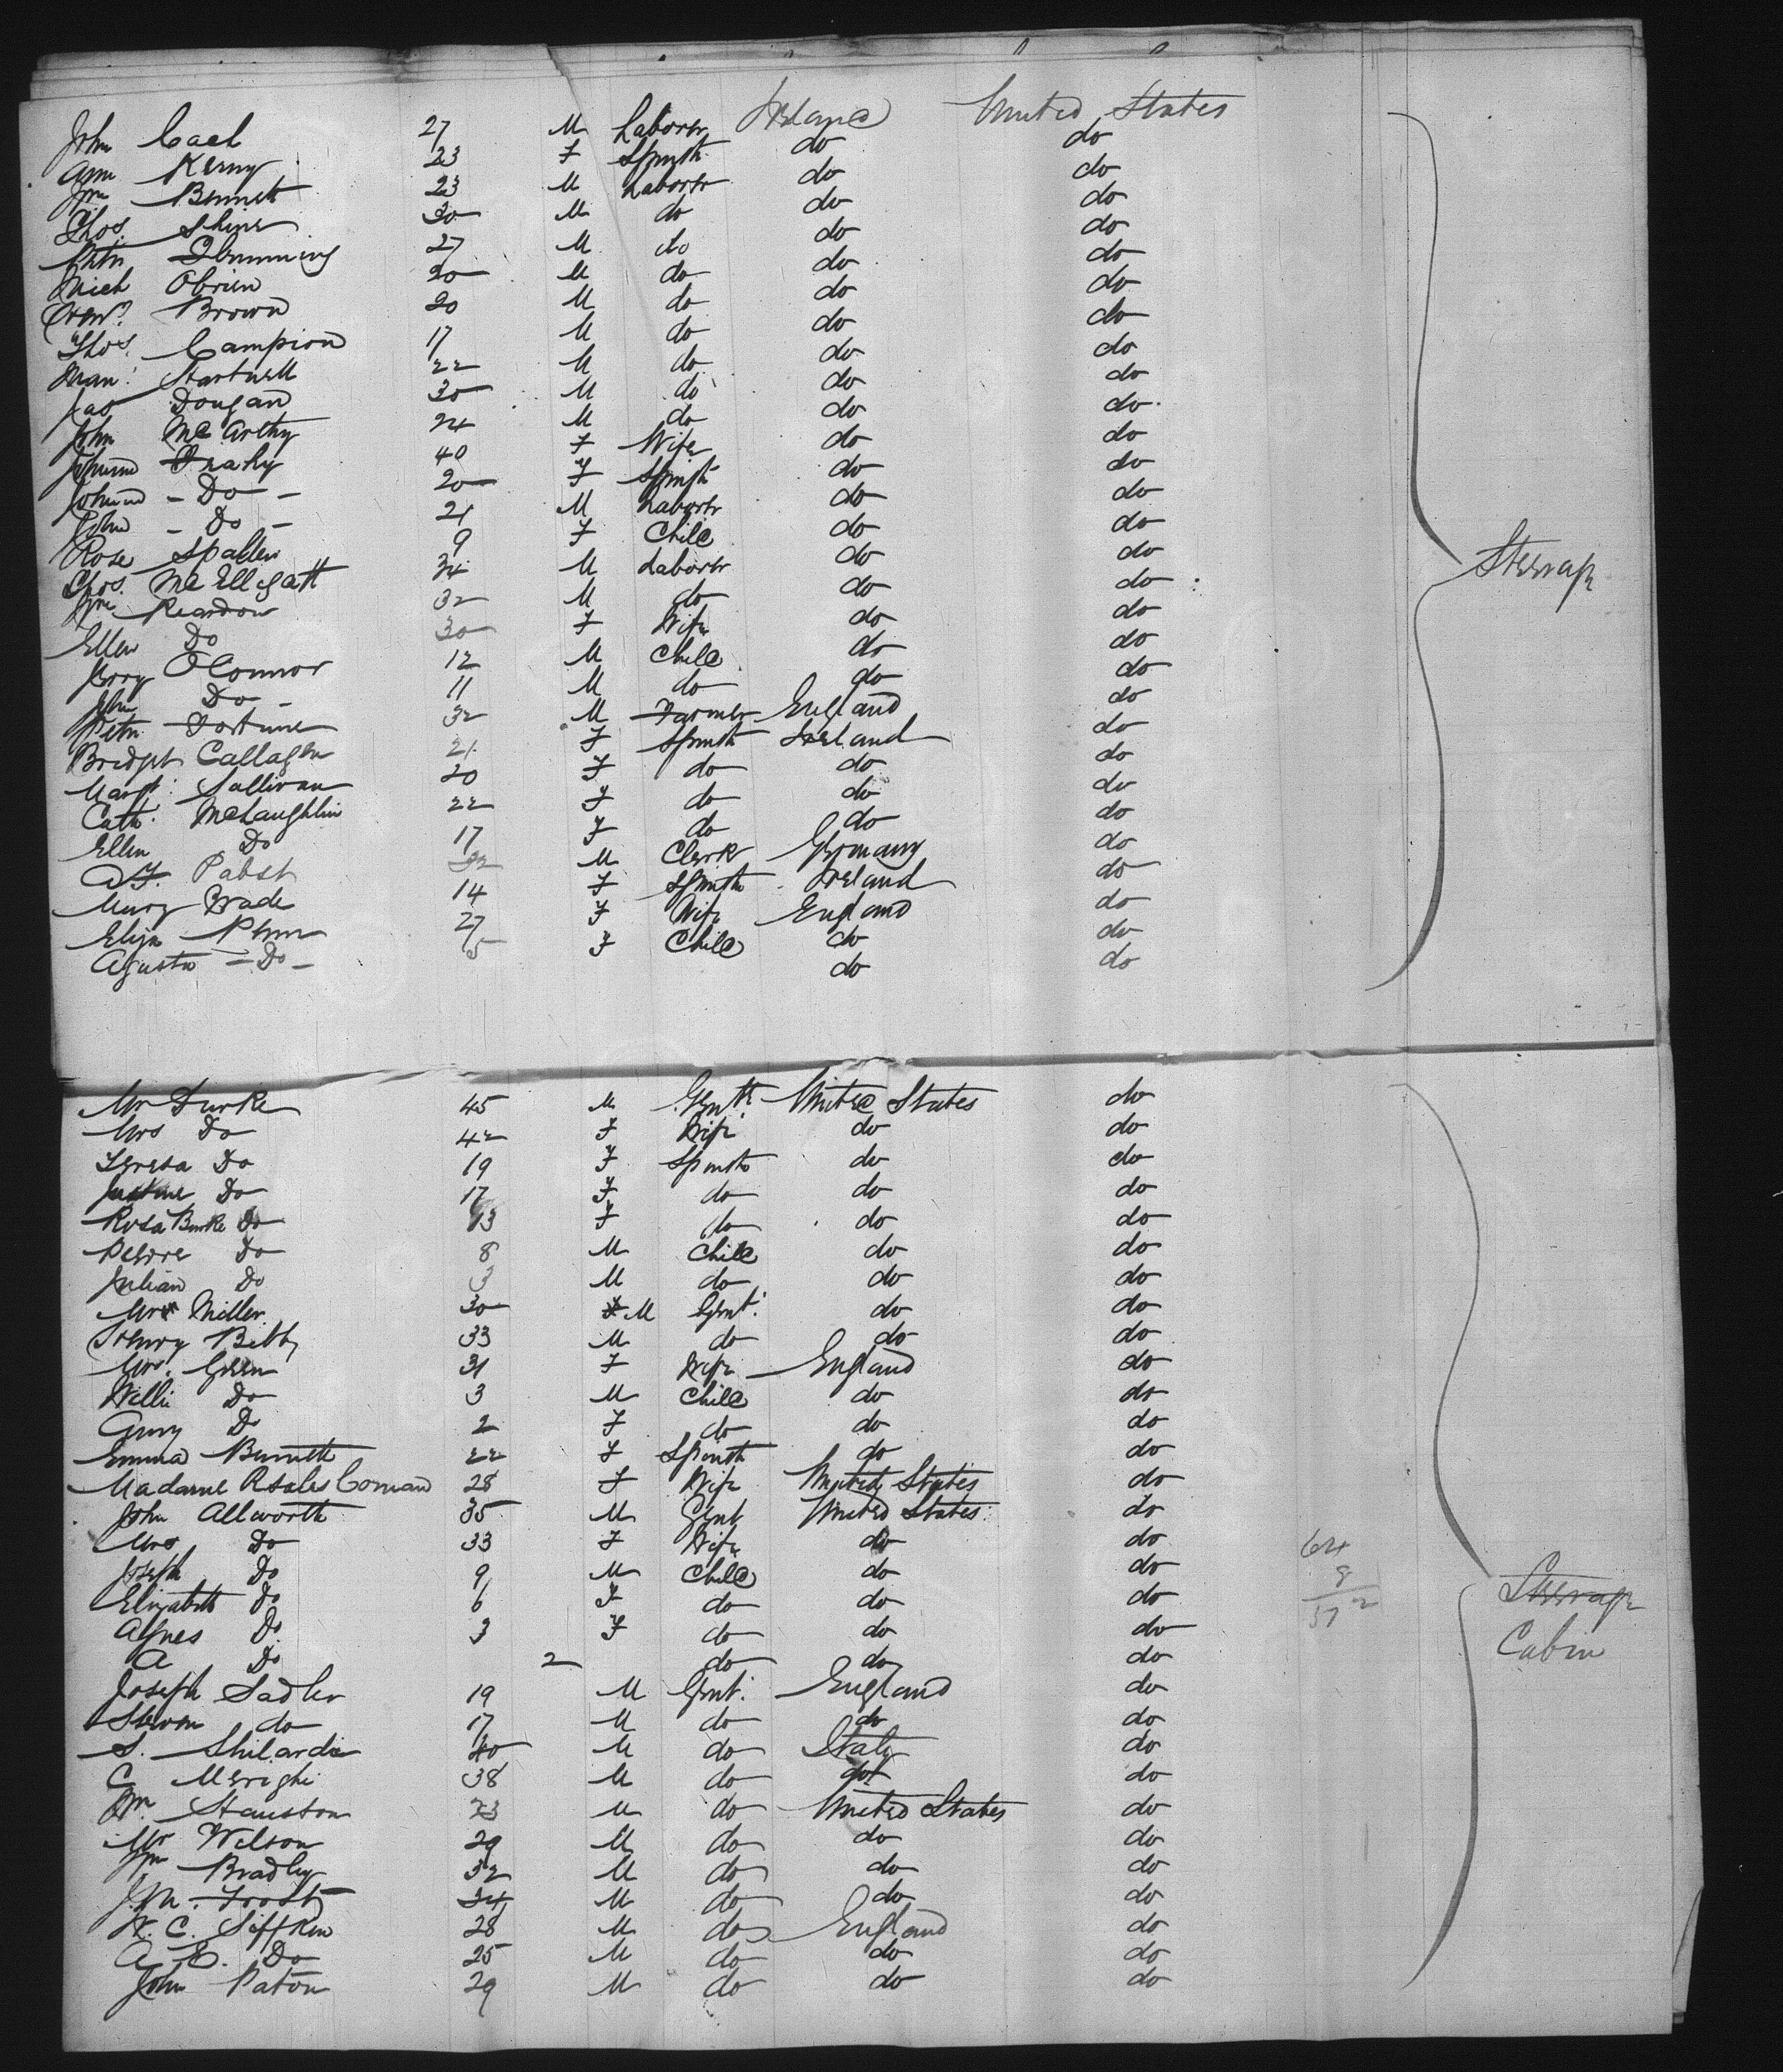 John Cael 27 M Laborer Ireland United States
Ann Kerny 23 F Spinstr do do
Wm Bennett 23 M Laborer do do
Thos. Shine 30 M do do do
Petr Flemming 27 M do do do
Mich Obrien 20 M do do do
Brown 20 M do do do
Thos. Campion 17 M do do do
Hartnell 22 M do do do
Jas Dougan 30 M do do do
John McArthy 24 M do do do
40 F Wife do do
- Do - 20 F Spinstr do do
John - Do - 21 M Laborer do do
Rose Spallen 9 F Child do do
Thos. McElligatt 34 M Laborer do do
Wm Reardon 32 M do do do
Ellen Do 30 F Wife do do
Jerry OConnor 12 M Child do do
John Do - 11 M do do do
Petr Fortune 32 M Farmer England do
Bridget Callaghn 21 F Spinstr Ireland do
Margt. Sullivan 20 F do do do
Cath. McLaughlin 22 F do do do
Ellen Do 17 F do do do
A.F. Pabst 32 M Clerk Germany do
Mary Wade 14 F Spinstr Ireland do
Eliza 27 F Wife England do
Agusta - Do - 5 F Child do do
do do
Steerage
Mr Burke 45 M Gentn United States do
Mrs Do 42 F Wife do do
Teresa Do 19 F Spinstr do do
Justine Do 17 F do do do
Rosa Burke Do 13 F do do do
Pierre Do 8 M Child do do
Julian Do 3 M do do do
Mr Miller 30 M Gent. do do
Henry Bibby 33 M do do do
Mrs. Green 31 F Wife England do
Willi Do 3 M Child do do
Amy Do 2 F do do do
Emma Burnett 22 F Spinstr do do
Madame Rosales Coman 28 F Wife United States do
John Allworth 35 M Gent United States do
Mrs Do 33 F Wife do do
Joseph Do 9 M Child do do
Elizabeth Do 6 F do do do
Agnes Do 3 F do do do
A Do 2 do do do
Joseph Sadler 19 M Gent. England do
Steven do 17 M do do do
S. Shilardi 40 M do Italy do
C Merighi 38 M do do do
Wm Stauston 23 M do United States do
Mr Wilson 29 M do do do
Wm Bradley 32 M do do do
J.M. Frost 34 M do do do
W. C. Siffken 28 M do England do
A. E. Do 25 M do do do
John Paton 29 M do do do
64
8
512
Steerage
Cabin